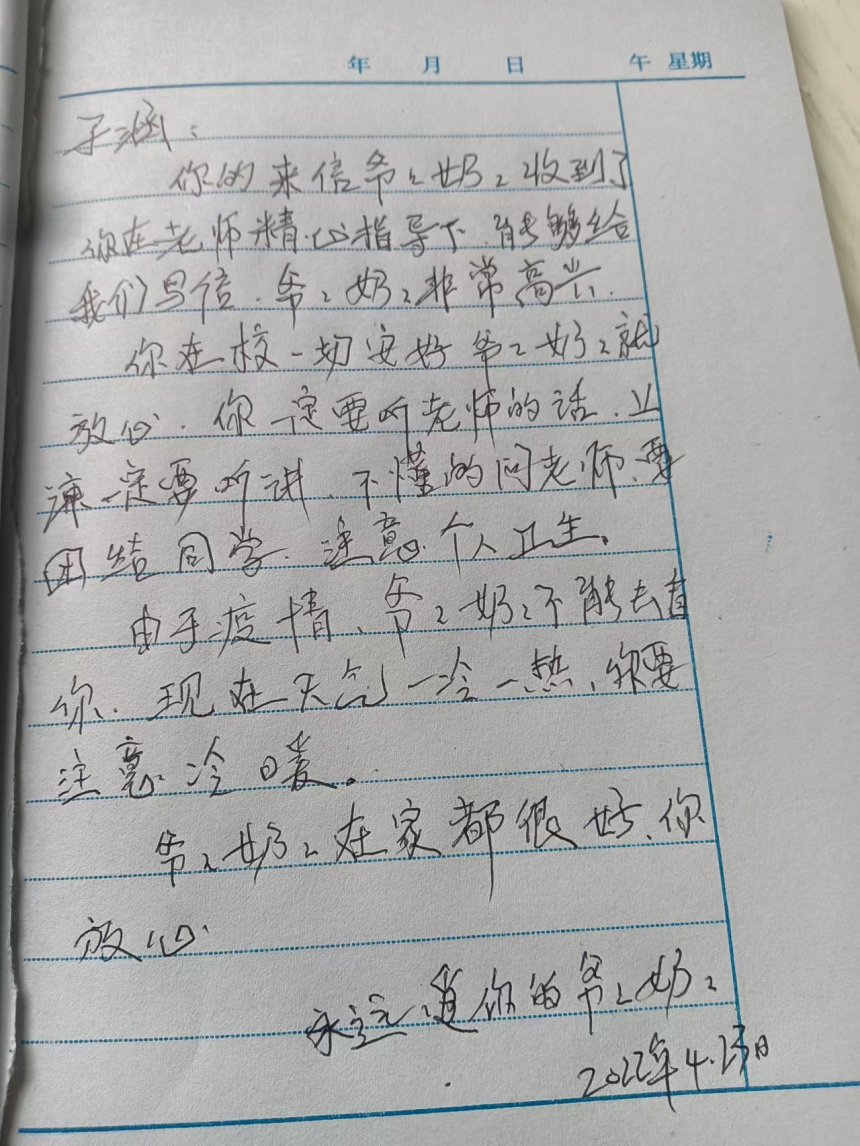 年 月 日 午 星期
子涵：
你的来信爷〻奶〻收到了
你在老师精心指导下.能够给
我们写信.爷〻奶〻非常高兴.
你在校一切安好爷〻奶〻就
放心.你一定要听老师的话.上
课一定要听讲.不懂的问老师.要
团结同学.注意个人卫生。
由于疫情、爷〻奶〻不能去看
你.现在天气一冷一热、你要
注意冷暖。
爷〻奶〻在家都很好、你
放心.
永远 你的爷〻奶〻
2022年4.23日